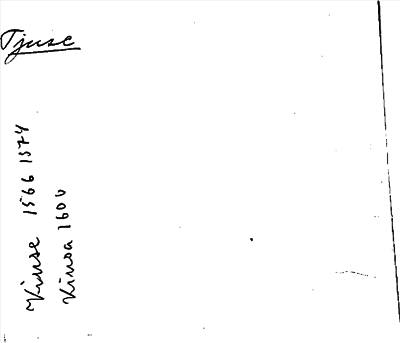 Tjuse
Kiuse 1566 1574
Kiusa 1600